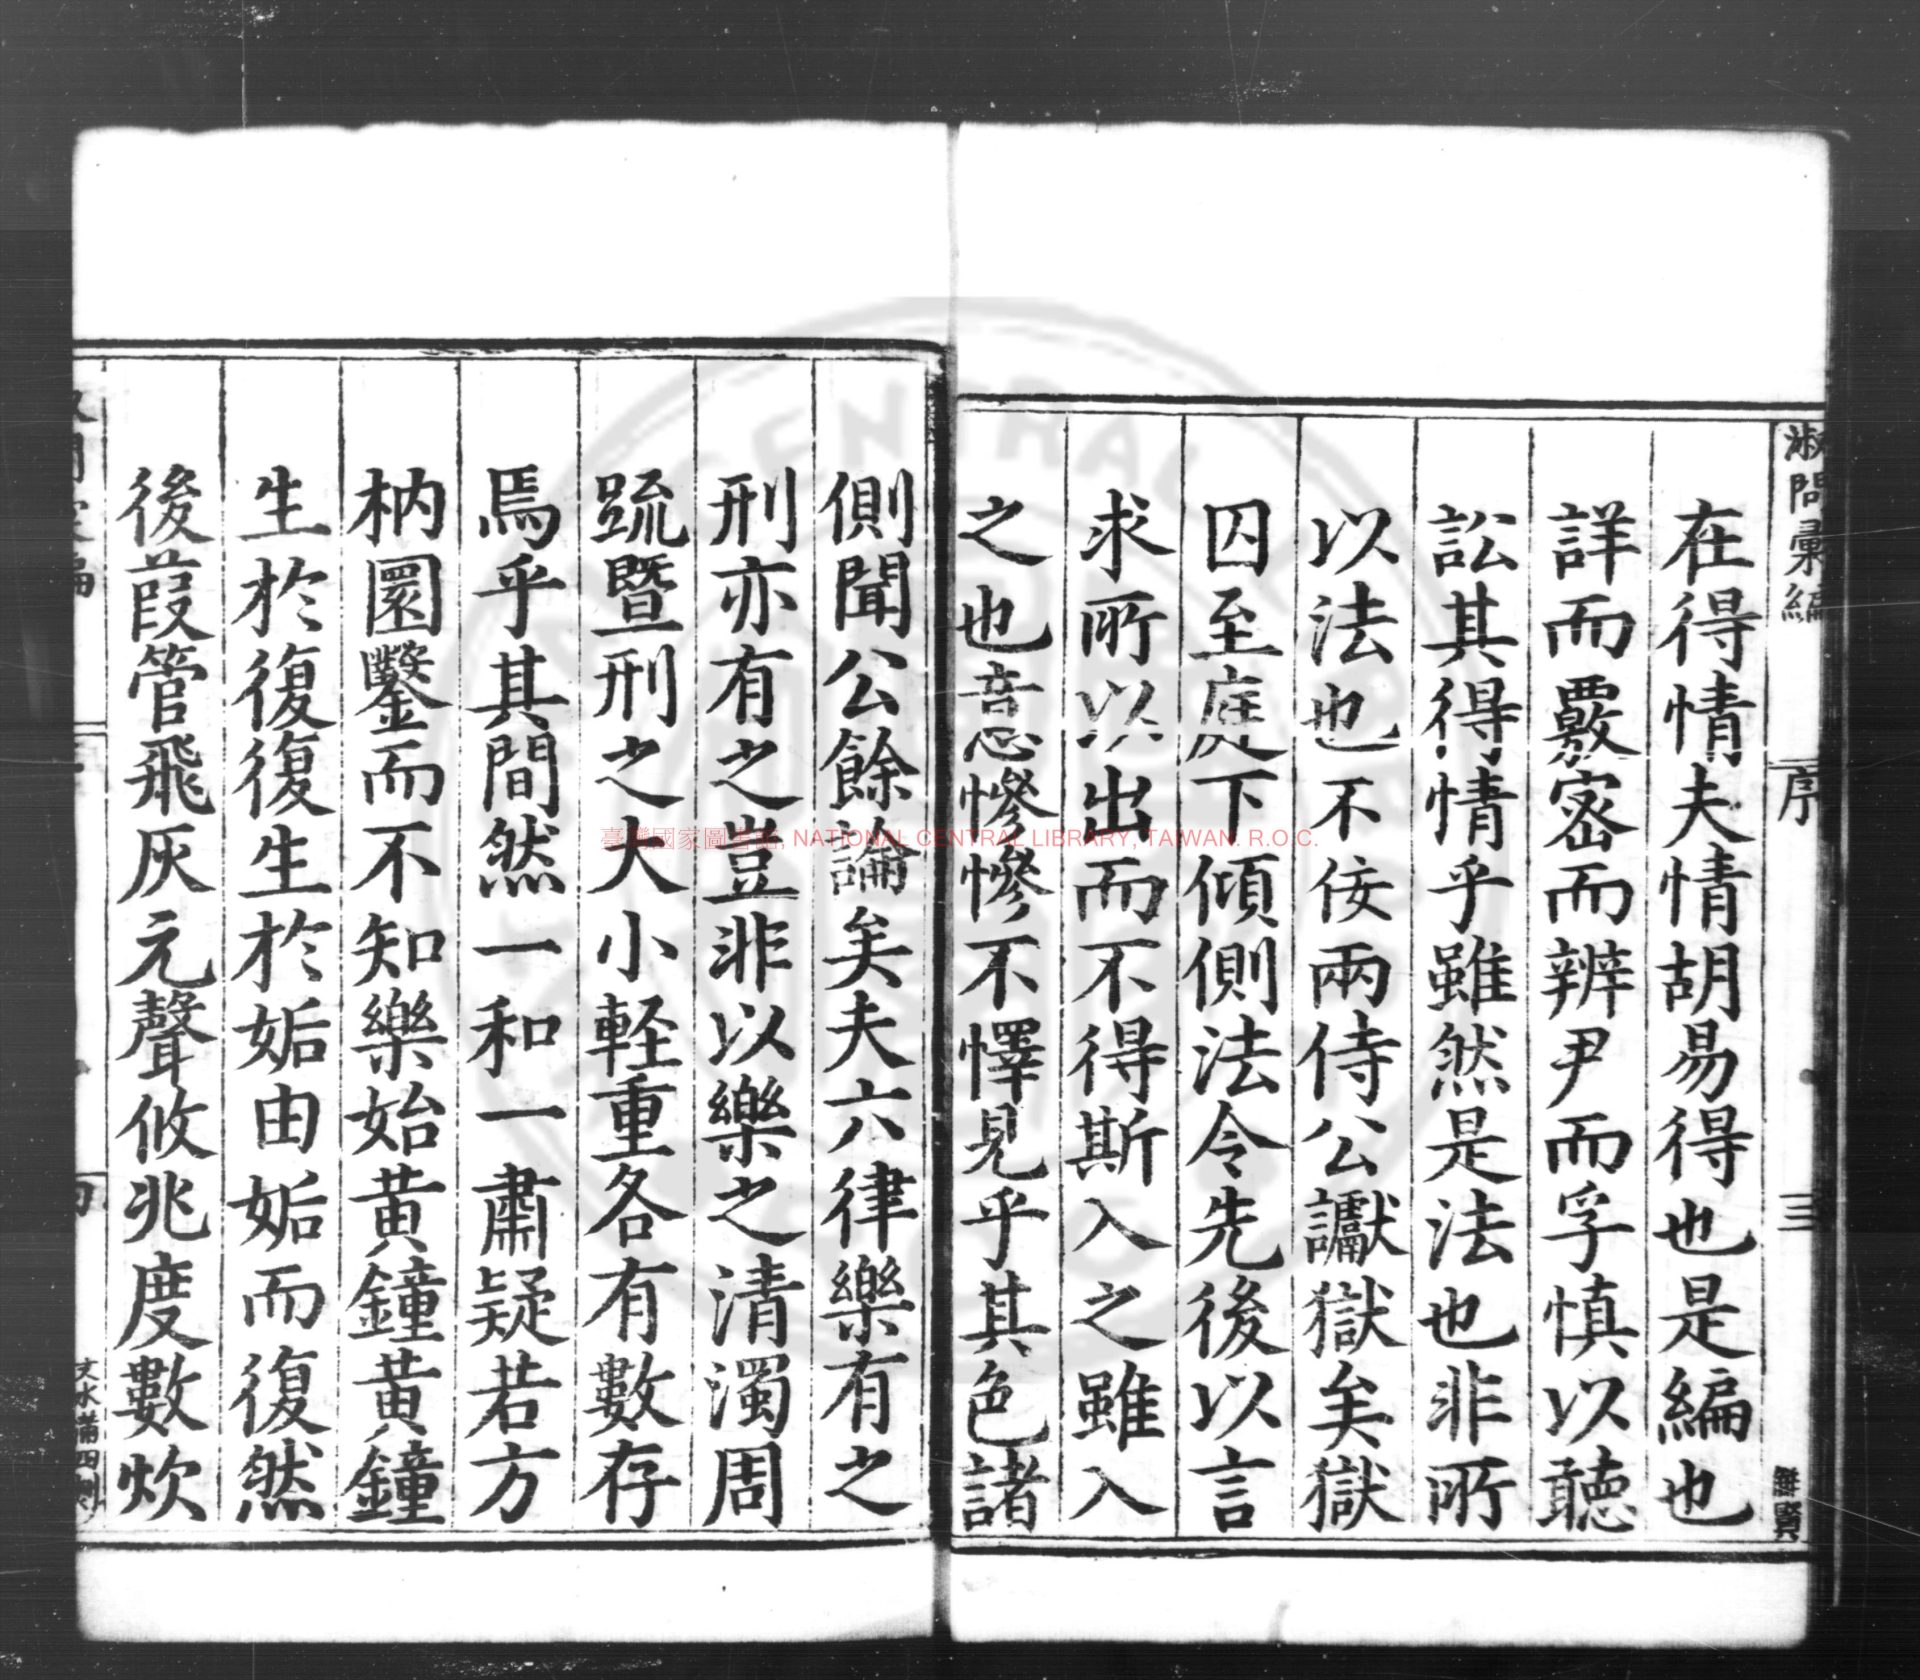 淑問彙編
序
三
在得情夫情胡易得也是編也
詳而覈密而辨尹而孚慎以聽
訟其得情乎雖然是法也非所
以法也不佞兩侍公讞獄矣獄
囚至庭下傾側法令先後以言
求所以出而不得斯入之雖入
之也意慘慘不懌見乎其色諸
側聞公餘論矣夫六律樂有之
刑亦有之豈非以樂之清濁周
疏暨刑之大小輕重各有數存
焉乎其間然一和一肅疑若方
枘圜鑿而不知樂始黃鐘黃鐘
生於復復生於姤由姤而復然
後葭管飛灰元聲攸兆度數炊
臺灣國家圖書館, NATIONAL CENTRAL LIBRARY, TAIWAN. R.O.C.